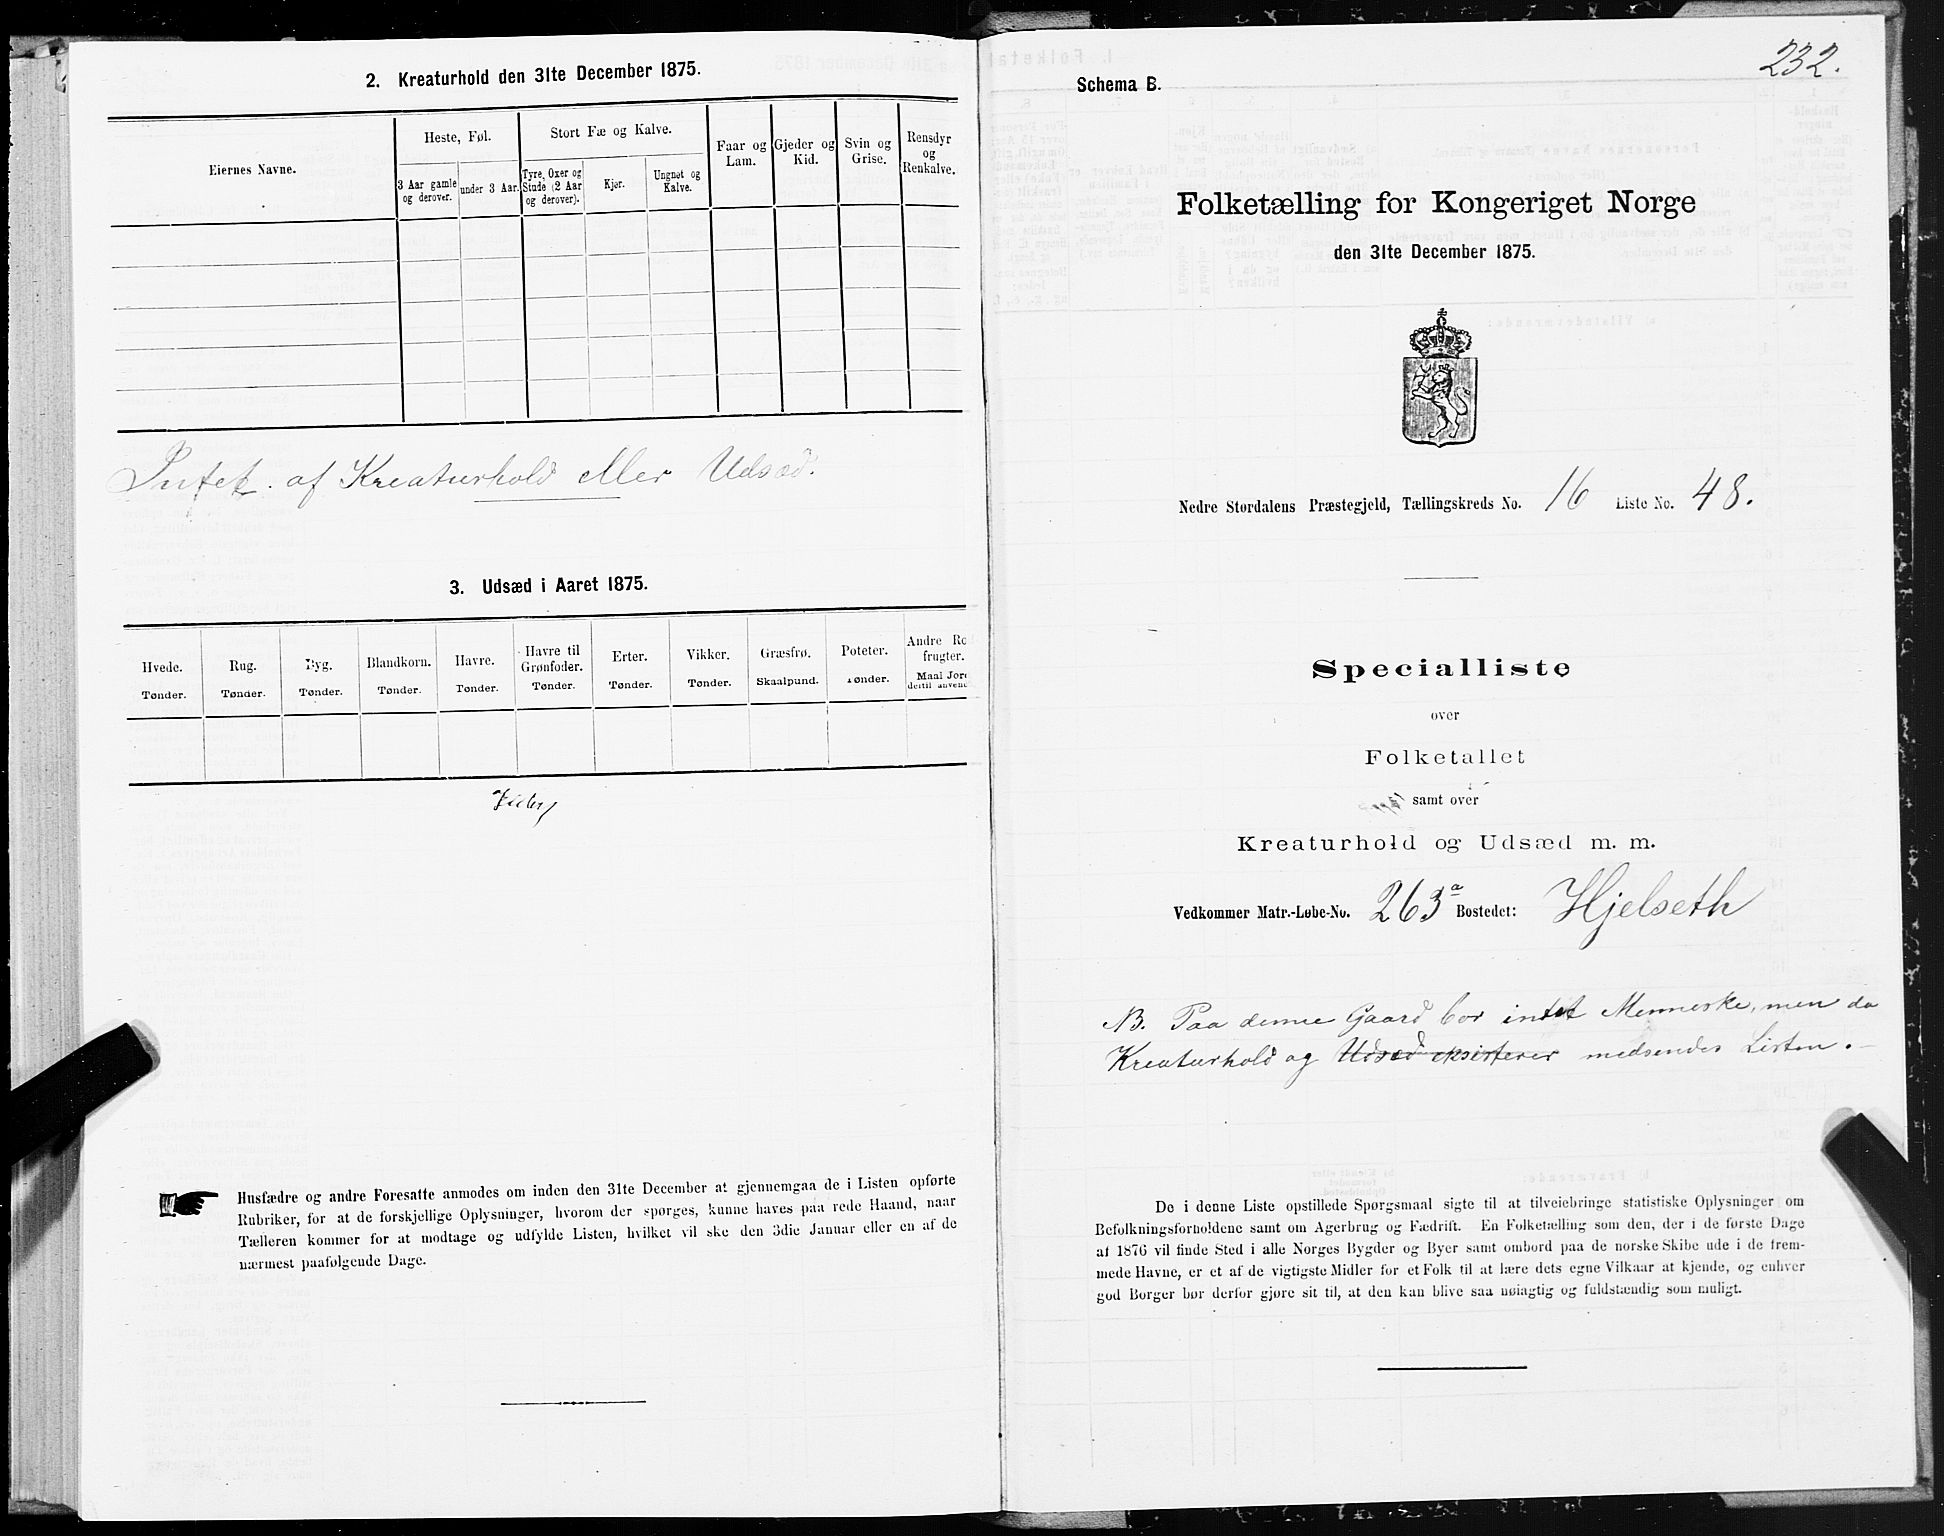 2. Kreaturhold den 31te December 1875.
Eiernes Navne.
Heste, Føl.
Stort Fæ og Kalve.
Faar og Lam.
Gjeder og Kid.
Svin og Grise.
Rensdyr og Renkalve.
3 Aar gamle og derover.
under 3 Aar.
Tyre, Oxer og Stude (2 Aar og derover).
Kjør.
Ungnøt og Kalve.
Intet af Kreaturhold eller Udsæd.
3. Udsæd i Aaret 1875.
Hvede. Tønder.
Rug. Tønder.
Byg. Tønder.
Blandkorn. Tønder.
Havre. Tønder.
Havre til Grønfoder. Tønder.
Erter. Tønder.
Vikker. Tønder.
Græsfrø. Skaalpund.
Poteter. Tønder.
Andre Ro frugter. Maal Jord dertil anvend
Husfædre og andre Foresatte anmodes om inden den 31te December at gjennemgaa de i Listen opførte
Rubriker, for at de forskjellige Oplysninger, hvorom der spørges, kunne haves paa rede Haand, naar
Tælleren kommer for at modtage og udfylde Listen, hvilket vil ske den 3die Januar eller en af de
nærmest paafølgende Dage.
232.
Schema B.
Folketælling for Kongeriget Norge
den 31te December 1875.
Nedre Størdalens Præstegjeld, Tællingskreds No. 16 Liste No. 48.
Specialliste
over
Folketallet
samt over
Kreaturhold og Udsæd m. m.
Vedkommer Matr.-Løbe-No. 263a Bostedet: Hjelseth
NB. Paa denne Gaard bor intet Menneske, men da
Kreaturhold og Udsæd eksisterer medsendes Listen.
De i denne Liste opstillede Spørgsmaal sigte til at tilveiebringe statistiske Oplysninger om
Befolkningsforholdene samt om Agerbrug og Fædrift. En Folketælling som den, der i de første Dage
af 1876 vil finde Sted i alle Norges Bygder og Byer samt ombord paa de norske Skibe ude i de frem-
mede Havne, er et af de vigtigste Midler for et Folk til at lære dets egne Vilkaar at kjende, og enhver
god Borger bør derfor gjøre sit til, at den kan blive saa nøiagtig og fuldstændig som muligt.